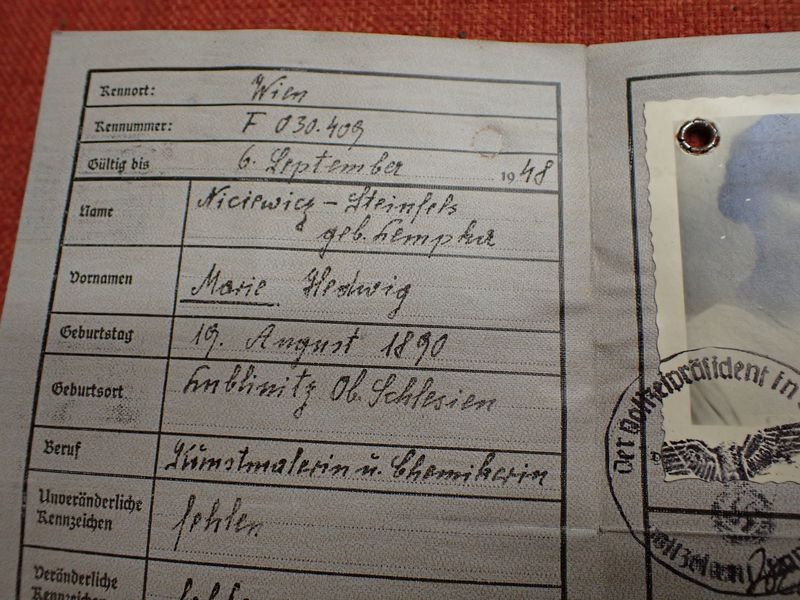 Kennort: Wien
Kennummer: F 030.409
Gültig bis 6. September 1948
Name Niciewicz - Steinfels
geb. Kempka
Vornamen Marie Hedwig
Geburtstag 19. August 1890
Geburtsort Lublinitz Ob. Schlesien
Beruf Kunstmalerin u. Chemikerin
Unveränderliche
Kennzeichen fehlen
Veränderliche
Kennzeichen fehlen
Der Polizeipräsident in